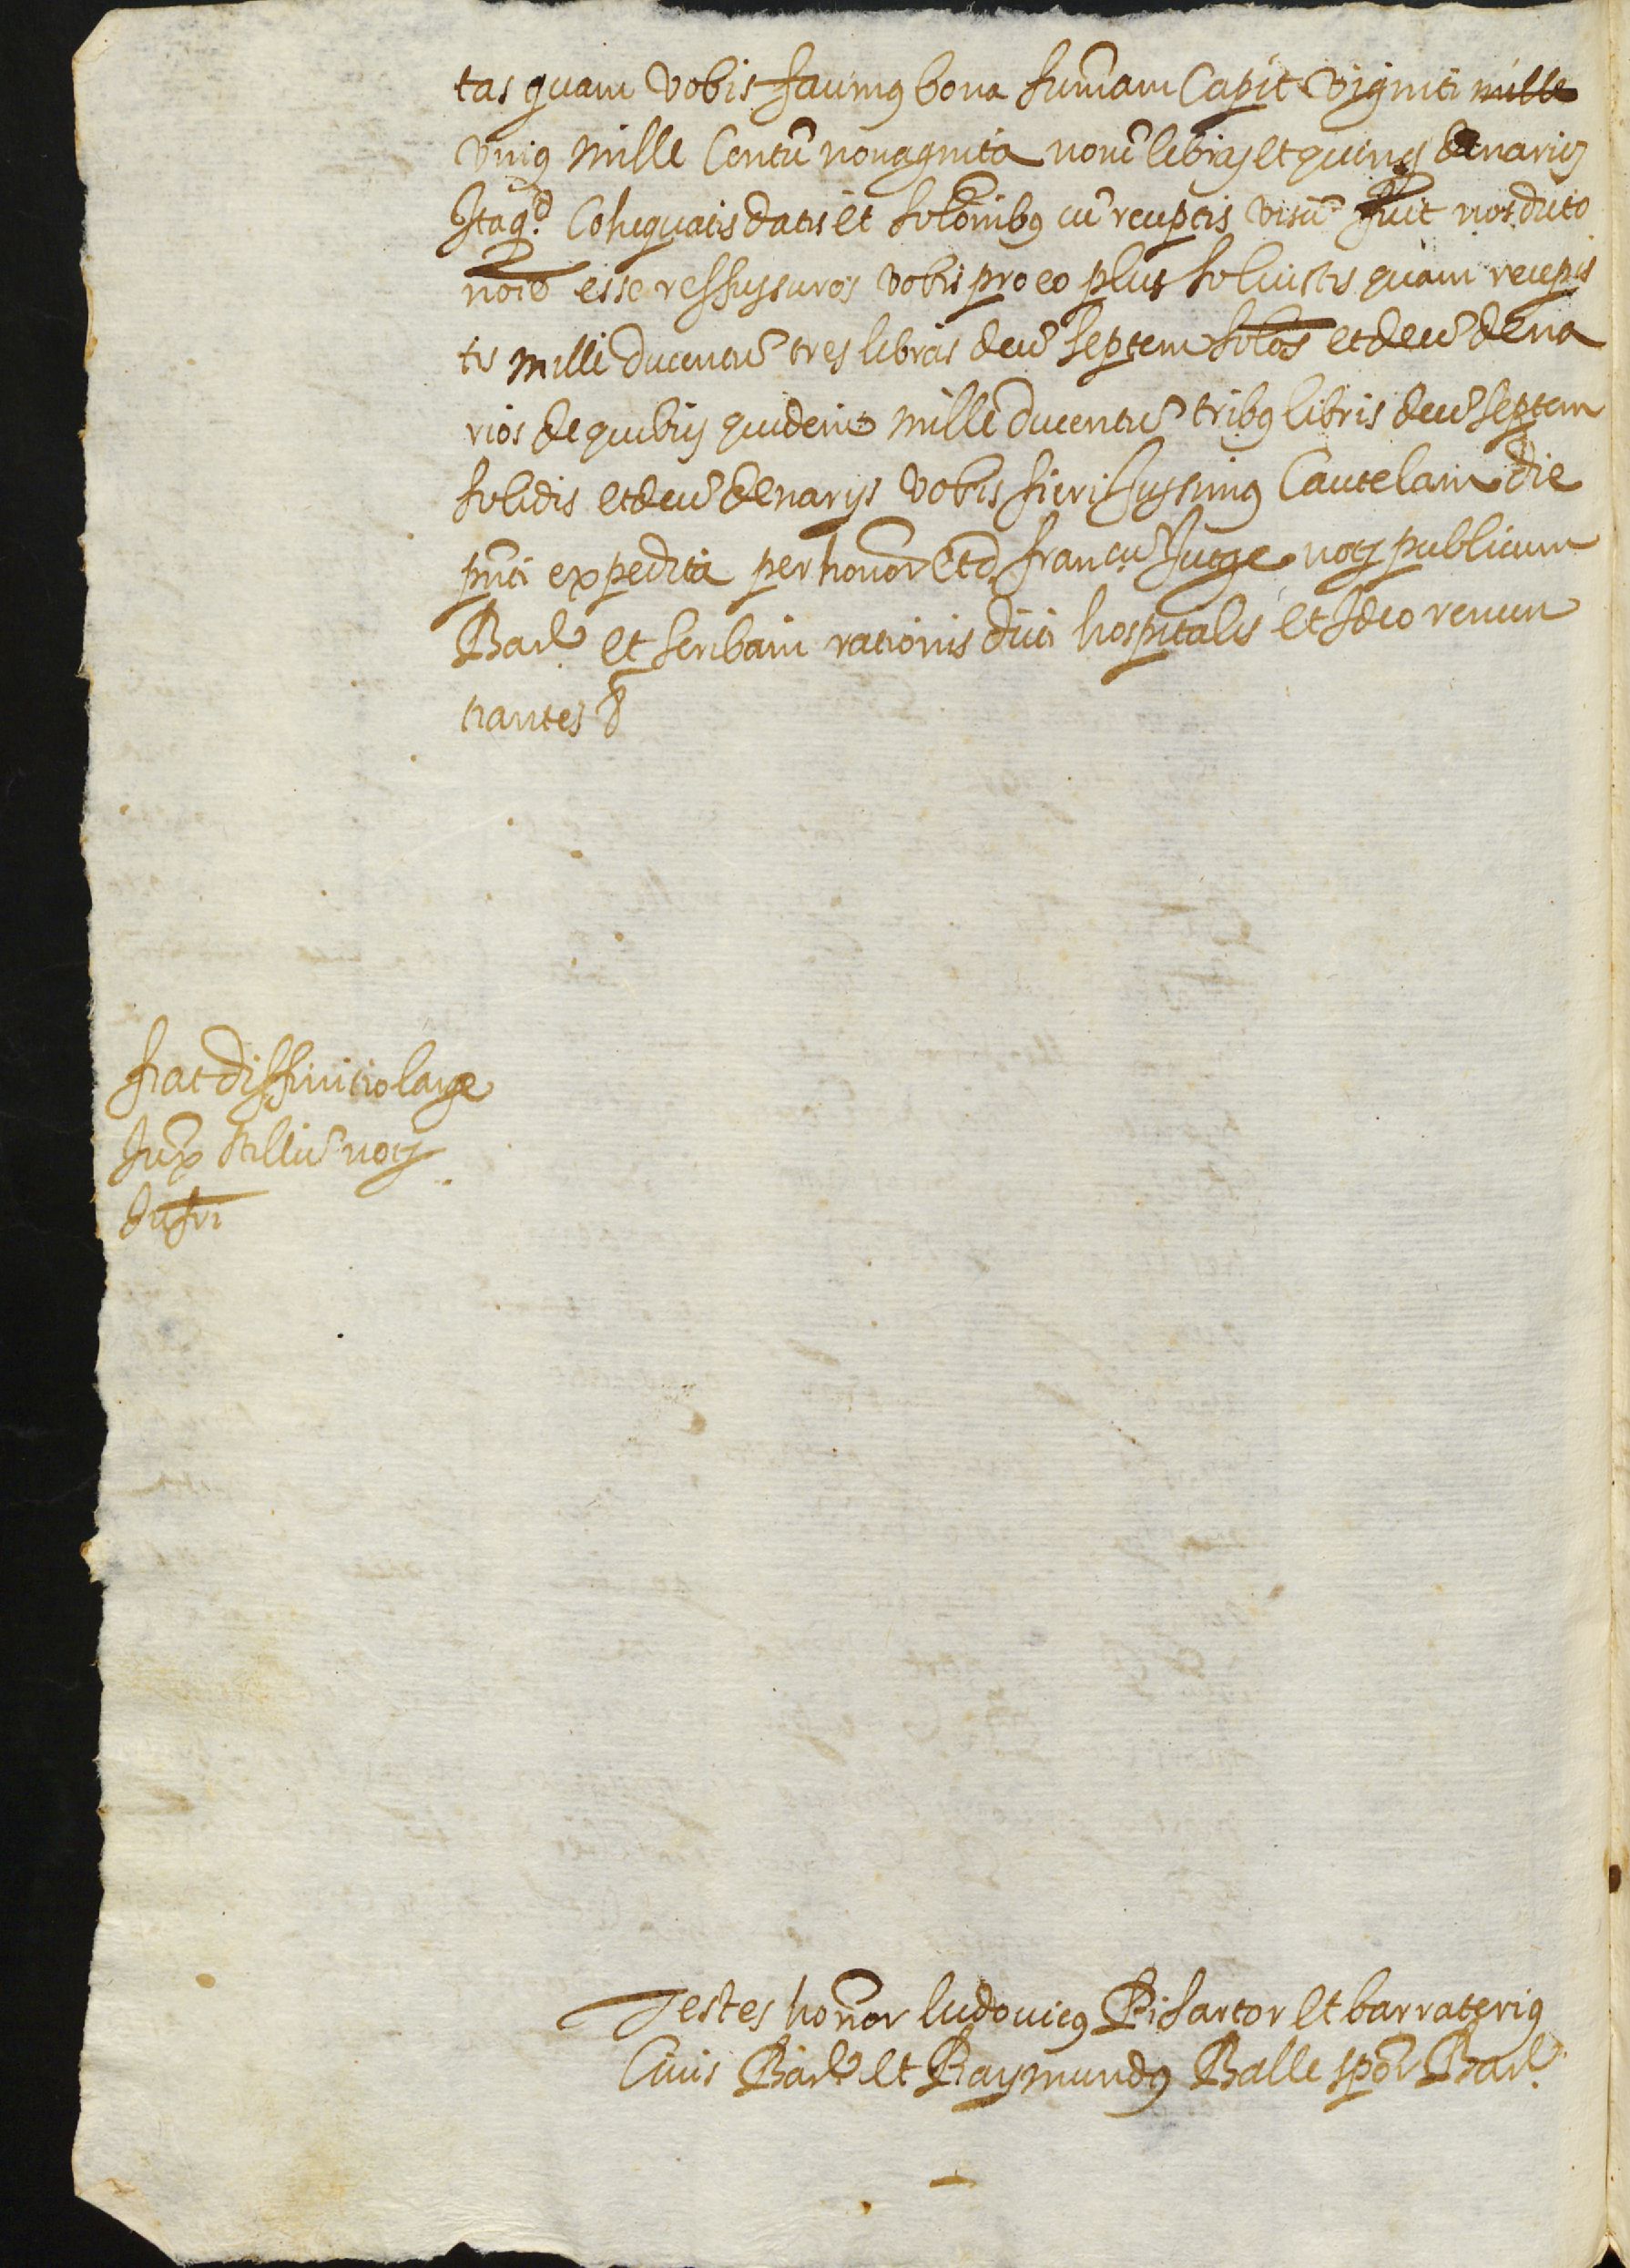 tas quam vobis facimꝰ bona sum̃am Capit viginti mille
vniꝰ mille Centũ nonaginta novẽ libras et quinqꝫ denarios
Itaq.d Cohequatis datis et solõnibꝰ cũ receptis visũ fuit nos dicto
noĩe esse reffussuros vobis pro eo plus solvistis quam recepis
tis mille ducentũ tres libras decẽ septem solõs et decẽ dena
rios de quibus quidem mille ducentũ tribꝰ libris decẽ septem
solidis et decẽ denarijs vobis fieri Jussimꝰ Cautelam die
pñti expedita per honor et d. franc.ũ Jutge notꝫ publicum
Bar.e et scribam rationis dicti hospitalis et Ideo renun
tiantes &
fiat diffinitio large
Jux̃ stillũ notꝫ
Infri
Testes honor ludovicꝰ Pi sartor et barrateriꝰ
Civis Bar.e et Raymundꝰ Balle spõr Bar.e